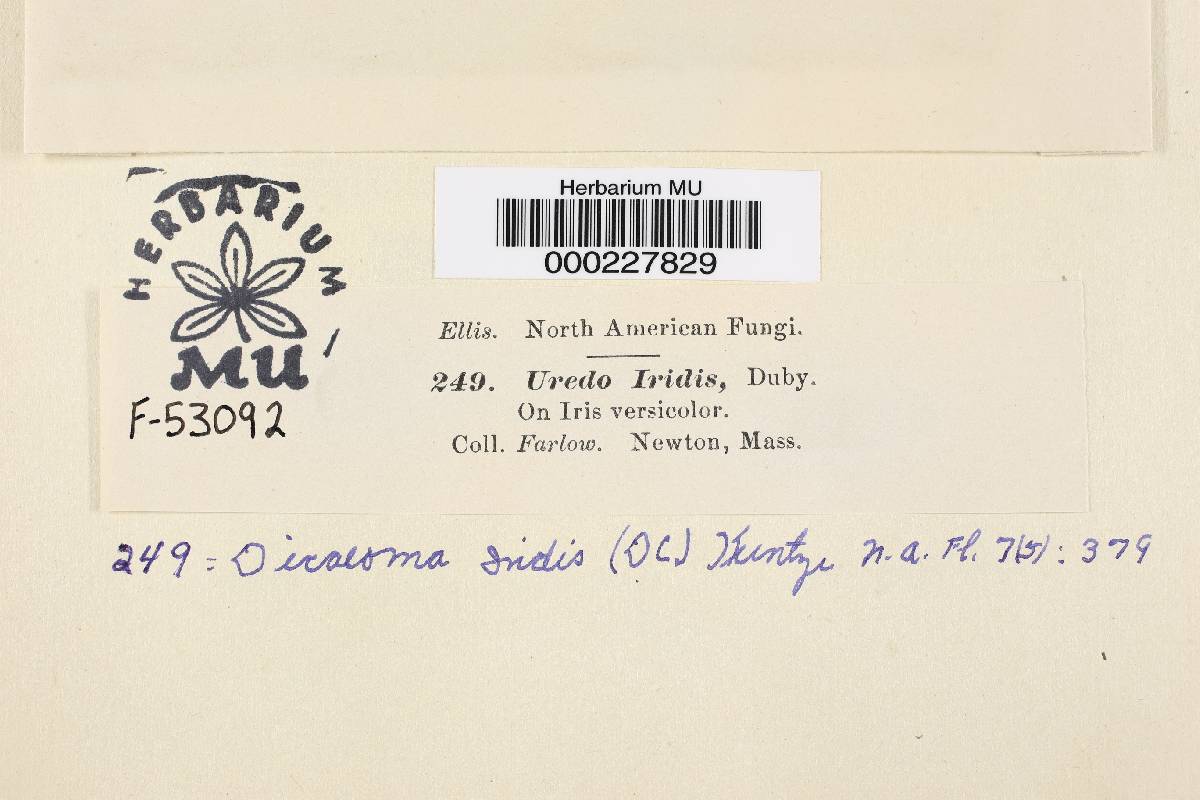 HERBARIUM
MU
F-53092
Herbarium MU
000227829
Ellis. North American Fungi.
249. Uredo Iridis, Duby.
On Iris versicolor.
Coll. Farlow. Newton, Mass.
249 = Dicaeoma Iridis (DC) Kuntze N.A. Fl. 7(5): 379